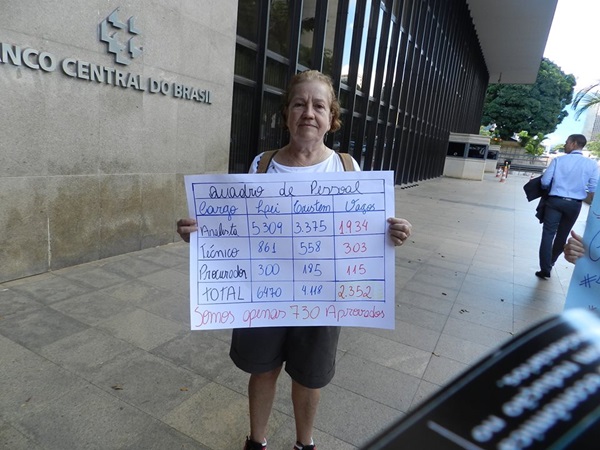 NCO CENTRAL DO BRASIL
Quadro de Pessoal
Cargo Lei Existem Vagas
Analista 5309 3.375 1934
Técnico 861 558 303
Procurador 300 185 115
TOTAL 6470 4.118 2.352
Somos apenas 730 Aprovados
econômica
a redução no